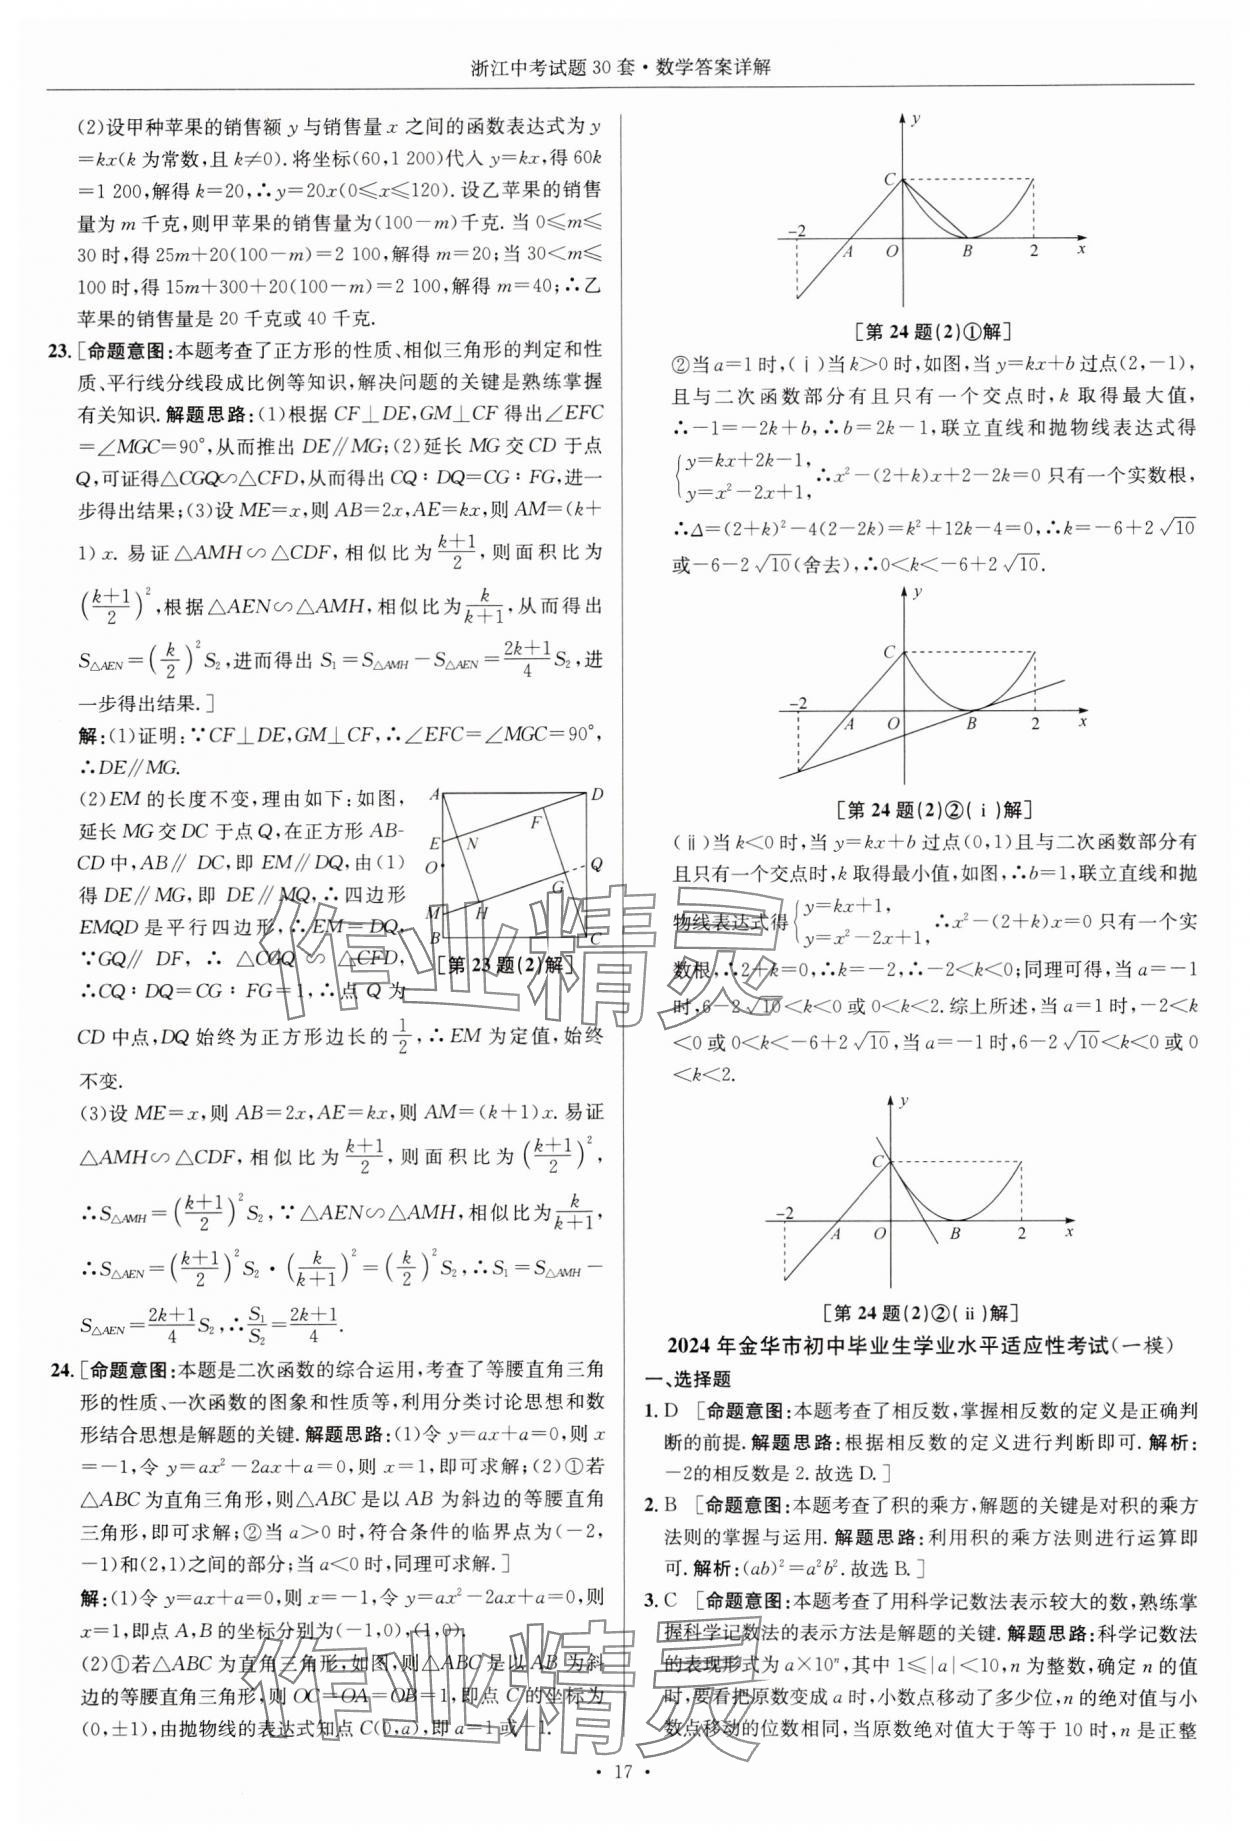 浙江中考试题30套·数学答案详解
(2)设甲种苹果的销售额 y 与销售量 x 之间的函数表达式为 y
=kx(k 为常数,且 k≠0).将坐标(60,1 200)代入 y=kx,得 60k
=1 200,解得 k=20,∴y=20x(0≤x≤120).设乙苹果的销售
量为 m 千克,则甲苹果的销售量为(100-m)千克.当 0≤m≤
30 时,得 25m+20(100-m)=2 100,解得 m=20;当 30<m≤
100 时,得 15m+300+20(100-m)=2 100,解得 m=40;∴乙
苹果的销售量是 20 千克或 40 千克.
23.[命题意图:本题考查了正方形的性质、相似三角形的判定和性
质、平行线分线段成比例等知识,解决问题的关键是熟练掌握
有关知识.解题思路:(1)根据 CF⊥DE,GM⊥CF 得出∠EFC
=∠MGC=90°,从而推出 DE∥MG;(2)延长 MG 交 CD 于点
Q,可证得△CGQ∽△CFD,从而得出 CQ∶DQ=CG∶FG,进一
步得出结果;(3)设 ME=x,则 AB=2x,AE=kx,则 AM=(k+
1)x.易证△AMH∽△CDF,相似比为(k+1)/2,则面积比为
((k+1)/2)²,根据△AEN∽△AMH,相似比为k/(k+1),从而得出
S△AEN=(k/2)²S₂,进而得出 S₁=S△AMH-S△AEN=(2k+1)/4 S₂,进
一步得出结果.]
解:(1)证明:∵CF⊥DE,GM⊥CF,∴∠EFC=∠MGC=90°,
∴DE∥MG.
(2)EM 的长度不变,理由如下:如图,
延长 MG 交 DC 于点 Q,在正方形 AB-
CD 中,AB∥DC,即 EM∥DQ,由(1)
得 DE∥MG,即 DE∥MQ,∴四边形
EMQD 是平行四边形,∴EM=DQ,
∵GQ∥DF,∴△CGQ∽△CFD,
∴CQ∶DQ=CG∶FG=1,∴点 Q 为
A D F E N O Q G M H B C
[第 23 题(2)解]
CD 中点,DQ 始终为正方形边长的1/2,∴EM 为定值,始终
不变.
(3)设 ME=x,则 AB=2x,AE=kx,则 AM=(k+1)x.易证
△AMH∽△CDF,相似比为(k+1)/2,则面积比为((k+1)/2)²,
∴S△AMH=((k+1)/2)²S₂,∵△AEN∽△AMH,相似比为k/(k+1),
∴S△AEN=((k+1)/2)²S₂·(k/(k+1))²=(k/2)²S₂,∴S₁=S△AMH-
S△AEN=(2k+1)/4 S₂,∴S₁/S₂=(2k+1)/4.
24.[命题意图:本题是二次函数的综合运用,考查了等腰直角三角
形的性质、一次函数的图象和性质等,利用分类讨论思想和数
形结合思想是解题的关键.解题思路:(1)令 y=ax+a=0,则 x
=-1,令 y=ax²-2ax+a=0,则 x=1,即可求解;(2)①若
△ABC为直角三角形,则△ABC是以 AB 为斜边的等腰直角
三角形,即可求解;②当 a>0 时,符合条件的临界点为(-2,
-1)和(2,1)之间的部分;当 a<0 时,同理可求解.]
解:(1)令 y=ax+a=0,则 x=-1,令 y=ax²-2ax+a=0,则
x=1,即点 A,B 的坐标分别为(-1,0),(1,0).
(2)①若△ABC 为直角三角形,如图,则△ABC 是以 AB 为斜
边的等腰直角三角形,则 OC=OA=OB=1,即点 C 的坐标为
(0,±1),由抛物线的表达式知点 C(0,a),即 a=1 或-1.
y C -2 A O B 2 x
[第 24 题(2)①解]
②当 a=1 时,(ⅰ)当 k>0 时,如图,当 y=kx+b 过点(2,-1),
且与二次函数部分有且只有一个交点时,k 取得最大值,
∴-1=-2k+b,∴b=2k-1,联立直线和抛物线表达式得
{y=kx+2k-1, y=x²-2x+1, ∴x²-(2+k)x+2-2k=0 只有一个实数根,
∴Δ=(2+k)²-4(2-2k)=k²+12k-4=0,∴k=-6+2√10
或-6-2√10(舍去),∴0<k<-6+2√10.
y C -2 A O B 2 x
[第 24 题(2)②(ⅰ)解]
(ⅱ)当 k<0 时,当 y=kx+b 过点(0,1)且与二次函数部分有
且只有一个交点时,k 取得最小值,如图,∴b=1,联立直线和抛
物线表达式得{y=kx+1, y=x²-2x+1, ∴x²-(2+k)x=0 只有一个实
数根,∴2+k=0,∴k=-2,∴-2<k<0;同理可得,当 a=-1
时,6-2√10<k<0 或 0<k<2.综上所述,当 a=1 时,-2<k
<0 或 0<k<-6+2√10,当 a=-1 时,6-2√10<k<0 或 0
<k<2.
y C -2 A O B 2 x
[第 24 题(2)②(ⅱ)解]
2024 年金华市初中毕业生学业水平适应性考试(一模)
一、选择题
1. D [命题意图:本题考查了相反数,掌握相反数的定义是正确判
断的前提.解题思路:根据相反数的定义进行判断即可.解析:
-2的相反数是 2.故选 D.]
2. B [命题意图:本题考查了积的乘方,解题的关键是对积的乘方
法则的掌握与运用.解题思路:利用积的乘方法则进行运算即
可.解析:(ab)²=a²b².故选 B.]
3. C [命题意图:本题考查了用科学记数法表示较大的数,熟练掌
握科学记数法的表示方法是解题的关键.解题思路:科学记数法
的表现形式为 a×10ⁿ,其中 1≤|a|<10,n 为整数,确定 n 的值
时,要看把原数变成 a 时,小数点移动了多少位,n 的绝对值与小
数点移动的位数相同,当原数绝对值大于等于 10 时,n 是正整
· 17 ·
作业精灵
作业精灵